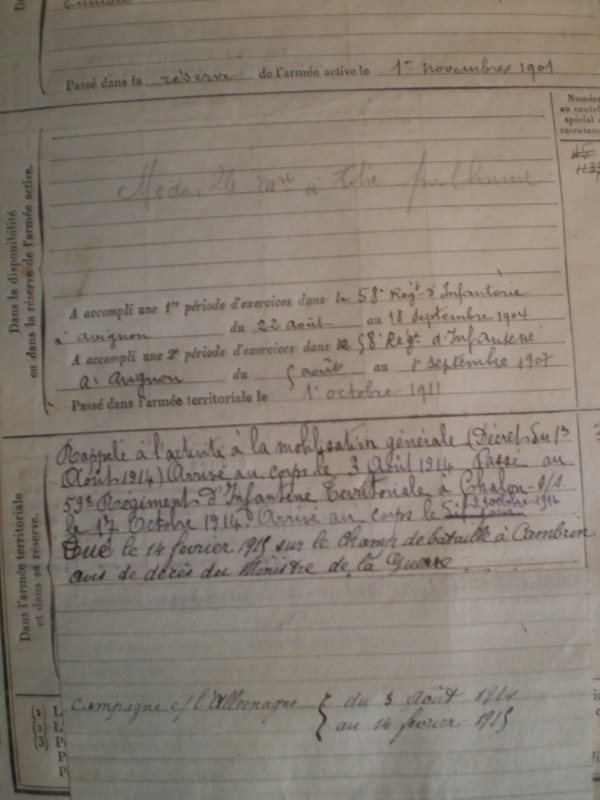 Passé dans la réserve de l'armée active le 1er novembre 1901
Numéro
au contrôle
spécial
recrutement
Dans la disponibilité
ou dans la réserve de l'armée active.
Médaille mre d'
A accompli une 1re période d'exercices dans le 58e Régt d'Infanterie
à avignon du 22 août au 18 septembre 1904
A accompli une 2e période d'exercices dans le 58e Régt d'Infanterie
à Avignon du août au septembre 1907
Passé dans l'armée territoriale le 1er octobre 1911
Dans l'armée territoriale
et dans sa réserve.
Rappelé à l'activité à la mobilisation générale (Décret du 1er
Août 1914) Arrivé au corps le 3 Août 1914 Passé au
59e Régiment d'Infanterie Territoriale à Chalon s/s
le 17 Octobre 1914. Arrivé au corps le octobre 1914
Tué le 14 février 1915 sur le champ de bataille à Cambrin
avis de décès du Ministre de la Guerre
Campagne c/ l'Allemagne { du 3 Août 1914
au 14 février 1915